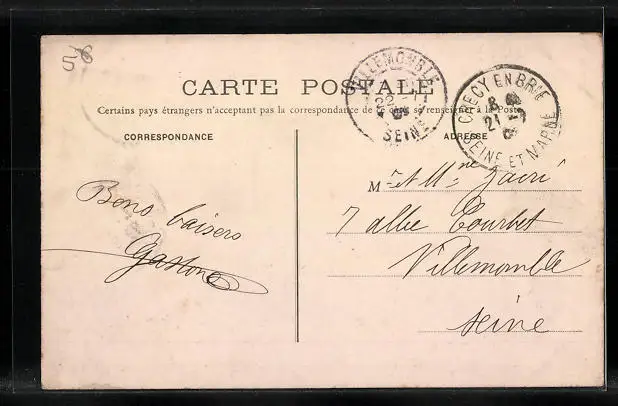 56
CARTE POSTALE
Certains pays étrangers n'acceptent pas la correspondance de ce côté se renseigner à la Poste
CORRESPONDANCE
ADRESSE
VILLEMOMBLE
22
SEINE
CRECY EN BRIE
8
21
SEINE ET MARNE
Mr et Mme
7 allée Courbet
Villemomble
Seine
Bons baisers
Gaston